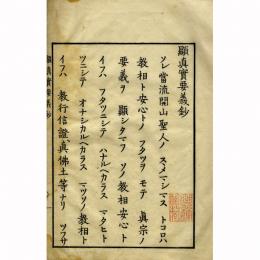 顯真實要義鈔
ソレ當流開山聖人ノ スヽメマシマス トコロハ
教相ト安心トノ フタツヲ モテ 真宗ノ
要義ヲ 顯シタマフ ソノ教相安心ト
イフハ フタツニシテ ハナルヘカラス マタヒト
ツニシテ オナシカルヘカラス マツソノ教相ト
イフハ 教行信證真佛土等ナリ ツフサ
顯真實要義鈔